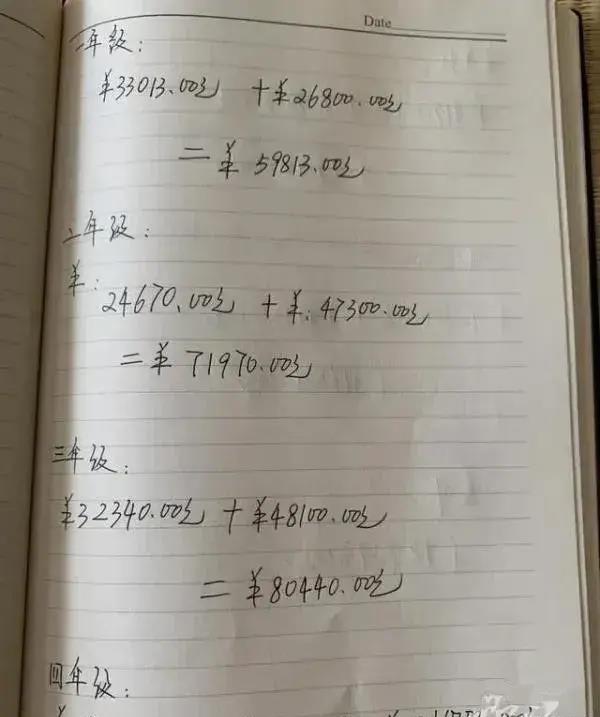 Date
一年级：
¥33013.00元 +¥26800.00元
=¥ 59813.00元
二年级：
¥：24670.00元 +¥：47300.00元
=¥ 71970.00元
三年级：
¥32340.00元 +¥48100.00元
=¥80440.00元
四年级：